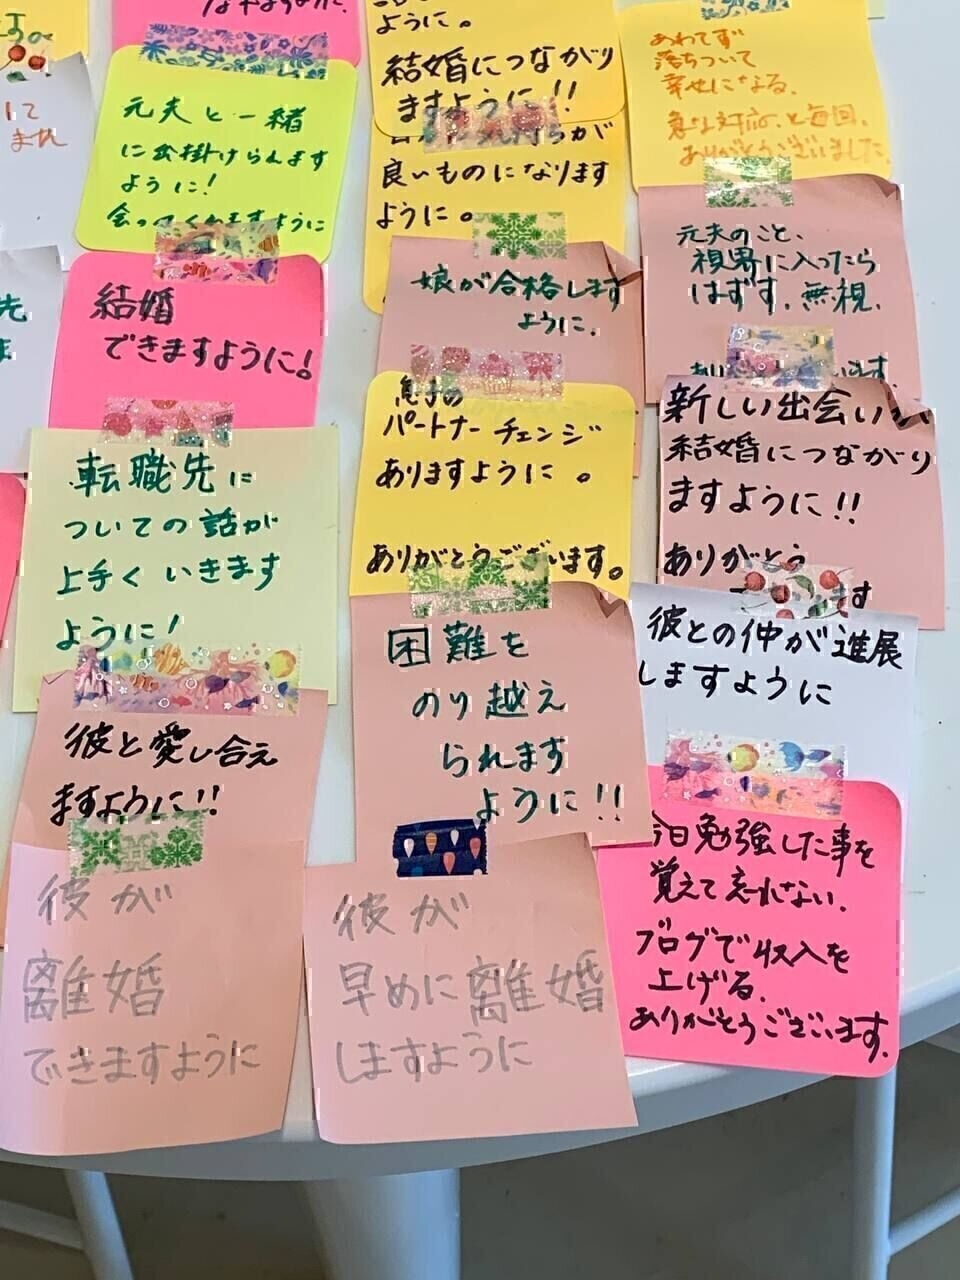 ように。
結婚につながり
ますように!!
良いものになります
ように。
あわてず
落ちついて
幸せになる。
急な対応、と毎回、
ありがとうございました。
元夫と一緒
に出掛けられます
ように!
会ってくれますように
元夫のこと、
視界に入ったら
はずす。無視。
娘が合格します
ように。
結婚
できますように!
息子の
パートナーチェンジ
ありますように。
ありがとうございます。
新しい出会いが
結婚につながり
ますように!!
ありがとう
ます
転職先に
ついての話が
上手くいきます
ように!
困難を
のり越え
られます
ように!!
彼との仲が進展
しますように
彼と愛し合え
ますように!!
今日勉強した事を
覚えて忘れない。
ブログで収入を
上げる。
ありがとうございます。
彼が
離婚
できますように
彼が
早めに離婚
しますように